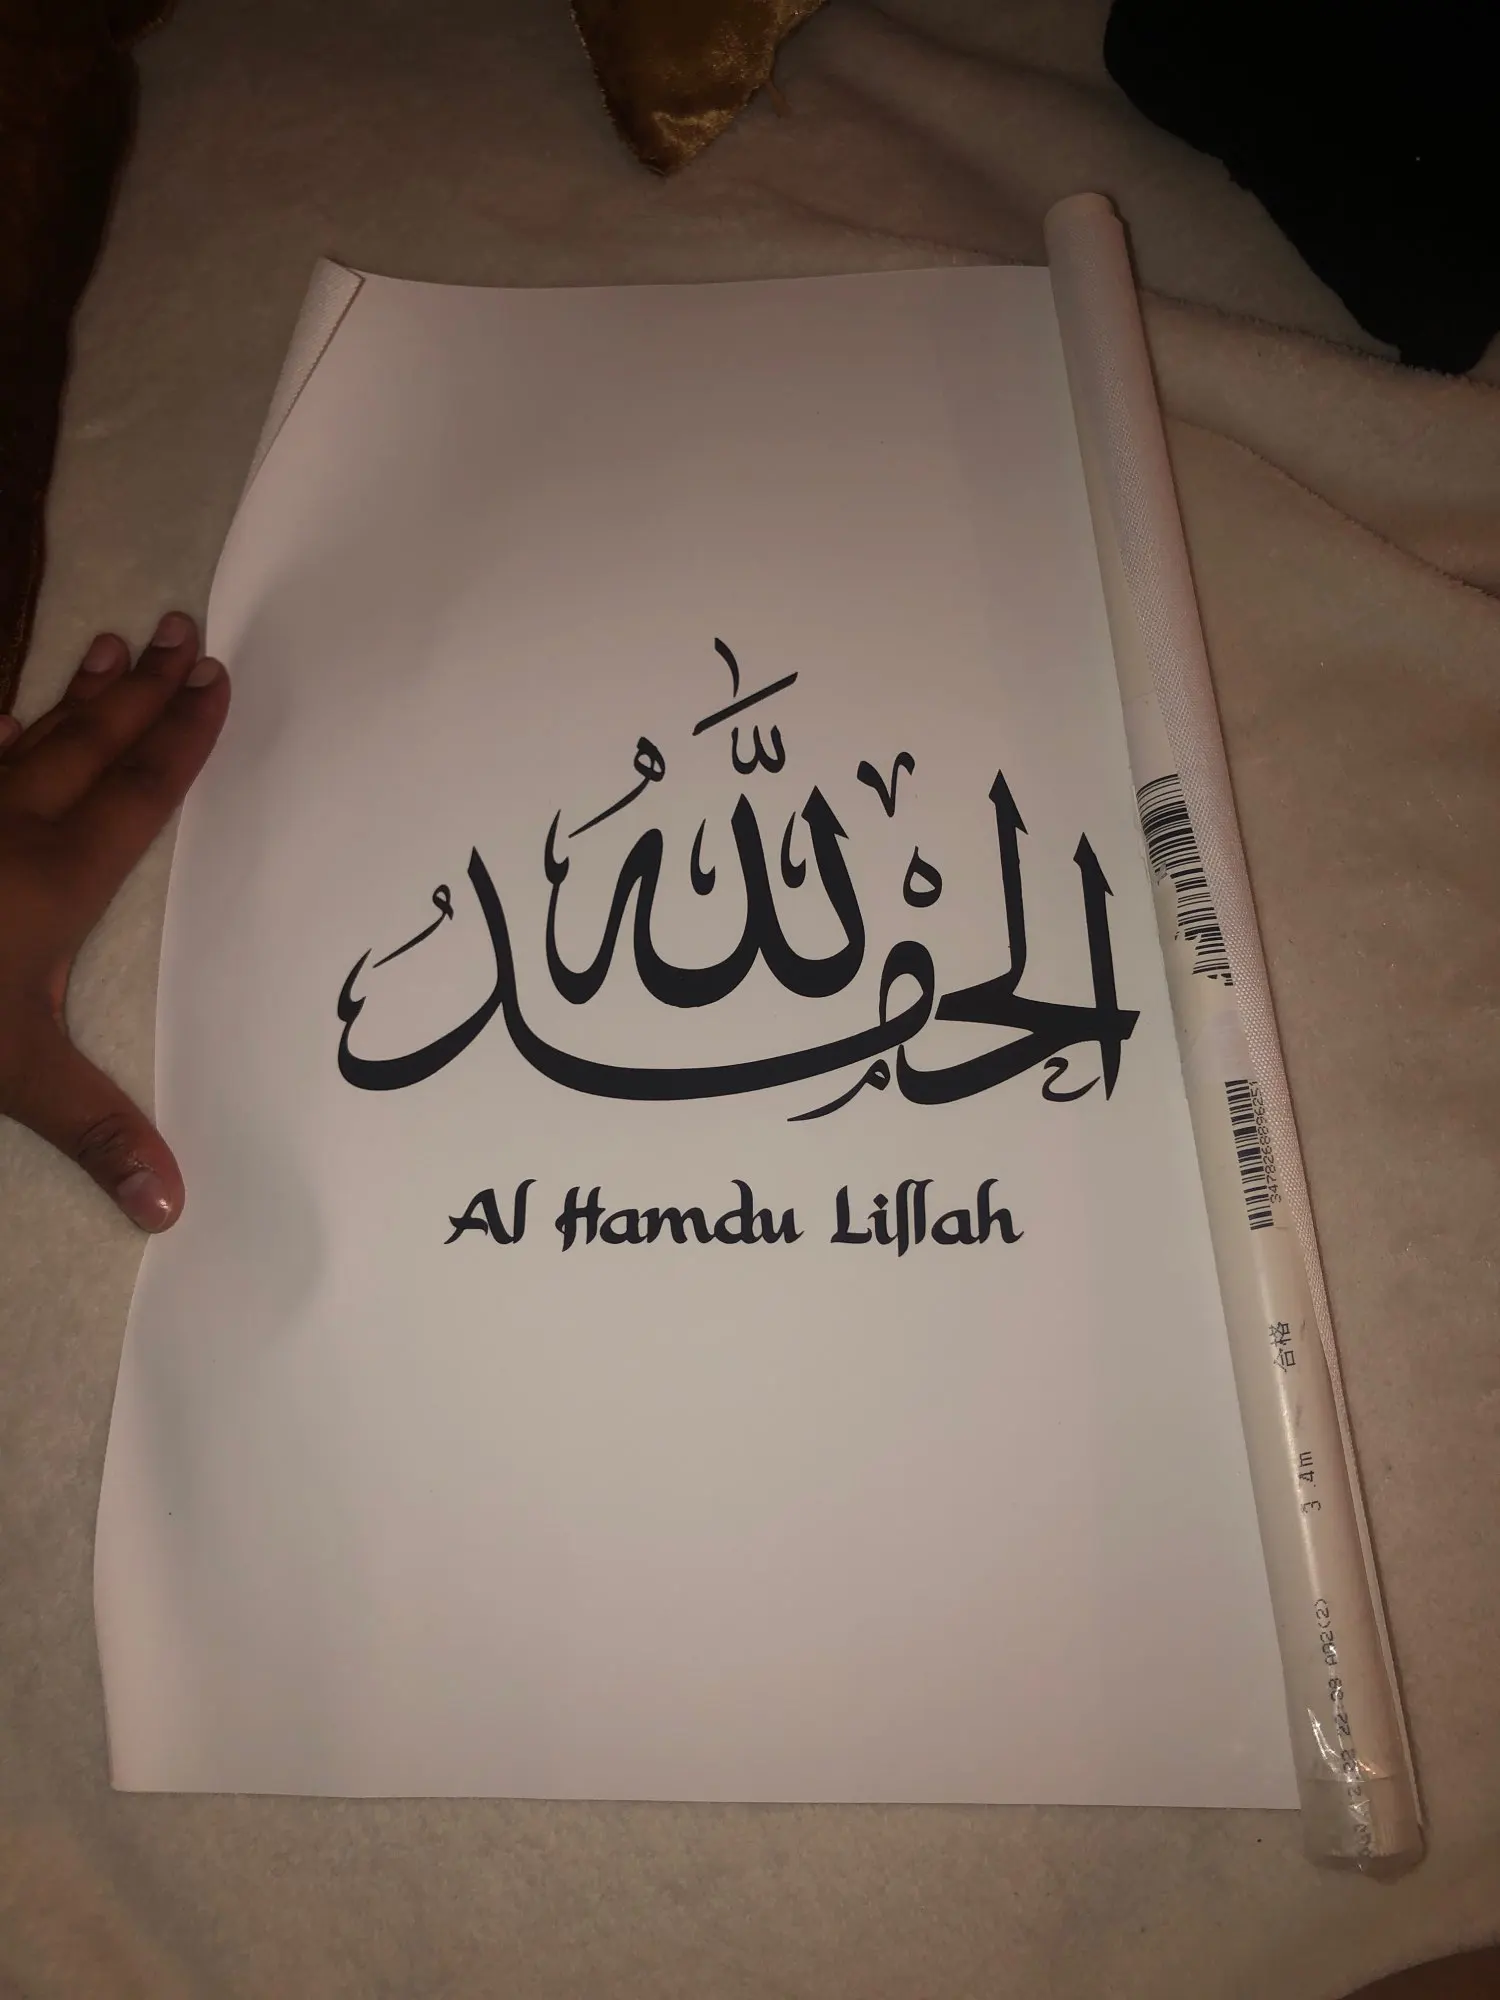 الحمدُ للهُ
Al Hamdu Lillah
3478268896251
合格
3.4m